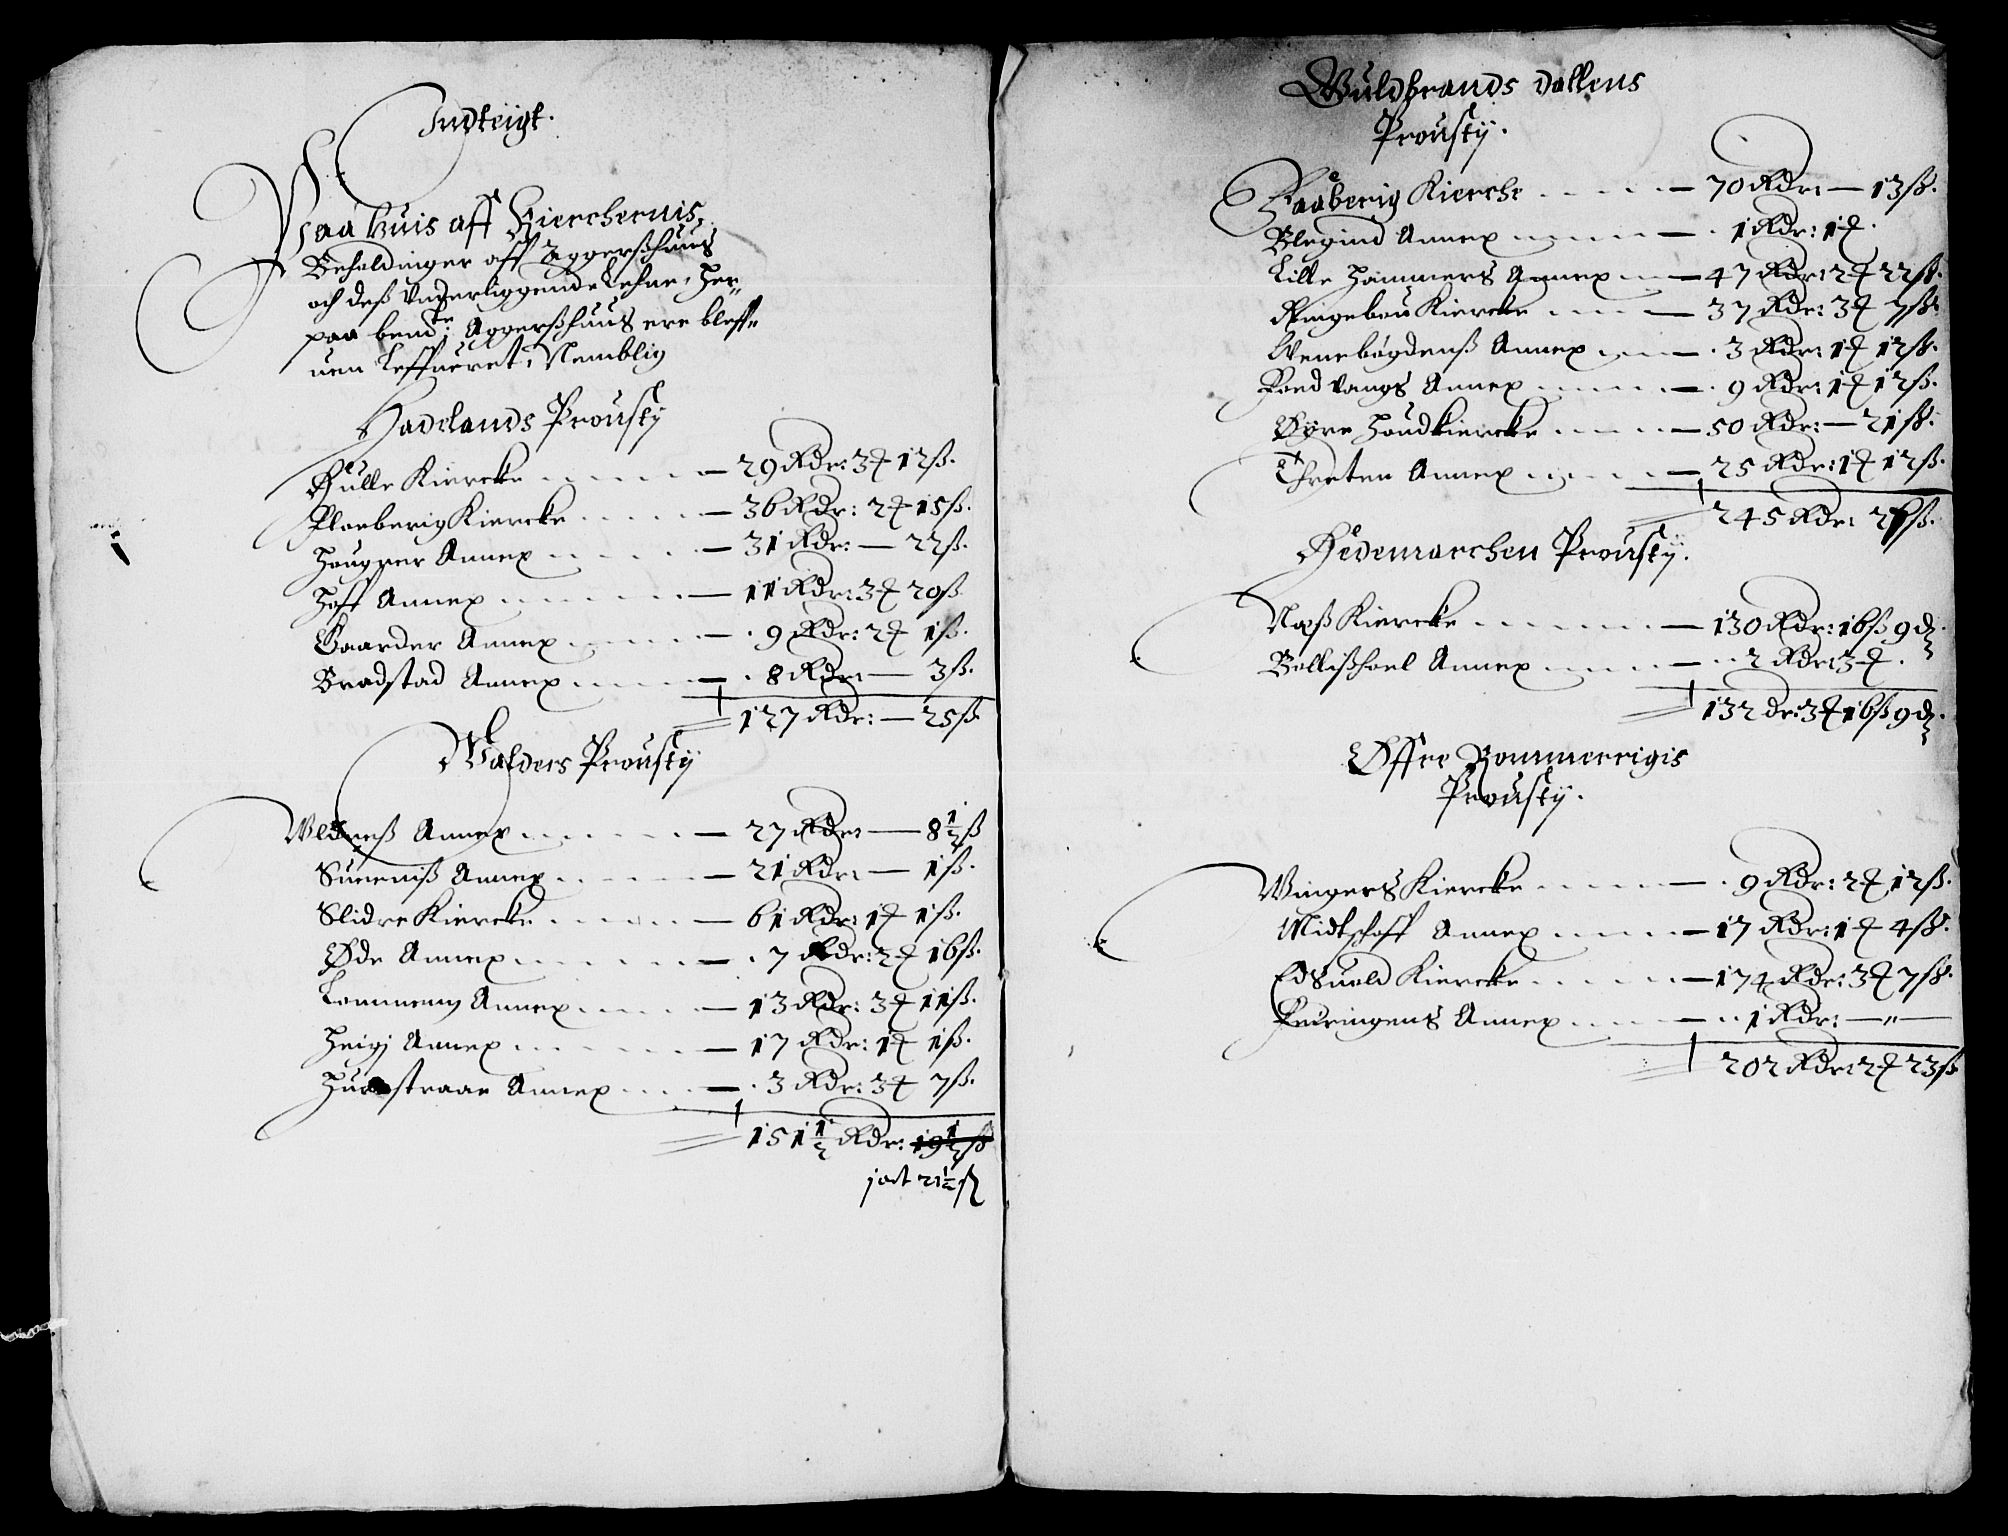 Indteigt.
Paa huis aff Kierchernis,
Beholdinger aff Aggerßhuus
och deß Vnderliggende Lehne, Her„
paa bemte: Aggerßhuus ere bleff„
uen Leffueret, Nemblig
Hadelands Prousty
Gulle Kiercke — 29 Rdr: 3 ₰ 12 ß.
Floeberig Kiercke — 36 Rdr: 2 ₰ 15 ß.
Hougner Annex — 31 Rdr: — 22 ß.
Hoff Annex — 11 Rdr: 3 ₰ 20 ß
Gaarder Annex — 9 Rdr: 2 ₰ 1 ß.
Bradstad Annex — 8 Rdr: — 3 ß.
127 Rdr: — 25 ß
Walders Prousty
Wldneß Annex — 27 Rdr: — 8 1/2 ß
Suenniß Annex — 21 Rdr: — 1 ß.
Slidre Kiercke — 61 Rdr: 1 ₰ 1 ß.
Øde Annex — 7 Rdr: 2 ₰ 16 ß.
Lommenn Annex — 13 Rdr: 3 ₰ 11 ß.
Heigj Annex — 17 Rdr: 1 ₰ 1 ß.
straae Annex — 3 Rdr: 3 ₰ 7 ß.
151 1/2 Rdr: 19 1/2 ß
jædt 21 1/2 ß
Guldbrands dallens
Prousty.
Faaberig Kierche — 70 Rdr: — 13 ß.
Blegind Annex — 1 Rdr: 1 ₰.
Lille Hammers Annex — 47 Rdr: 2 ₰ 22 ß.
Ringebou Kiercke — 37 Rdr: 3 ₰ 7 ß.
Wenebøgdenß Annex — 3 Rdr: 1 ₰ 12 ß.
Foed vangs Annex — 9 Rdr: 1 ₰ 12 ß.
Øyre Houdkiercke — 50 Rdr: — 21 ß.
Threten Annex — 25 Rdr: 1 ₰ 12 ß.
245 Rdr: 21 ß.
Hedemarchen Prousty.
Næß Kiercke — 130 Rdr: 16 ß 9 d.
Bollißhoel Annex — 2 Rdr: 3 ₰.
132 dr: 3 ₰ 16 ß 9 d.
Øffre Rommerrigis
Prousty.
Wingers Kiercke — 9 Rdr: 2 ₰ 12 ß.
Midtschoff Annex — 17 Rdr: 1 ₰ 4 ß.
Edsuold Kiercke — 174 Rdr: 3 ₰ 7 ß.
Feiringens Annex — 1 Rdr: — „ —
202 Rdr: 2 ₰ 23 ß